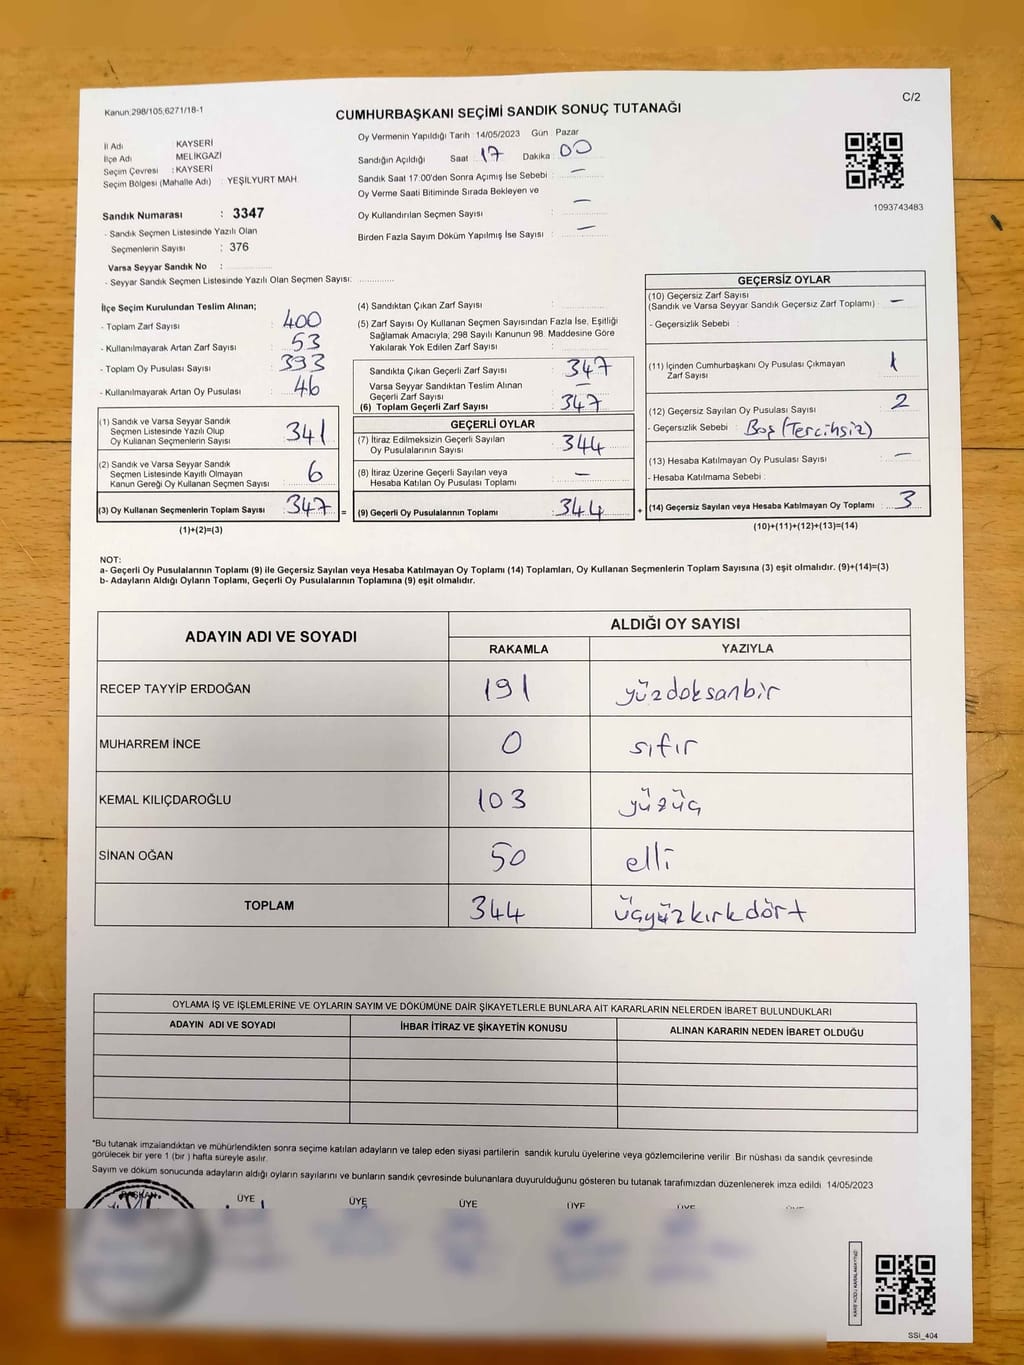 Kanun.298/105,6271/18-1
C/2
CUMHURBAŞKANI SEÇİMİ SANDIK SONUÇ TUTANAĞI
İl Adı KAYSERİ
İlçe Adı MELİKGAZİ
Seçim Çevresi : KAYSERİ
Seçim Bölgesi (Mahalle Adı) : YEŞİLYURT MAH.
Sandık Numarası : 3347
- Sandık Seçmen Listesinde Yazılı Olan
Seçmenlerin Sayısı : 376
Varsa Seyyar Sandık No :
- Seyyar Sandık Seçmen Listesinde Yazılı Olan Seçmen Sayısı:
Oy Vermenin Yapıldığı Tarih : 14/05/2023 Gün : Pazar
Sandığın Açıldığı Saat : 17 Dakika : 00
Sandık Saat 17:00'den Sonra Açımış İse Sebebi : —
Oy Verme Saati Bitiminde Sırada Bekleyen ve
Oy Kullandırılan Seçmen Sayısı : —
Birden Fazla Sayım Döküm Yapılmış İse Sayısı : —
1093743483
İlçe Seçim Kurulundan Teslim Alınan;
- Toplam Zarf Sayısı : 400
- Kullanılmayarak Artan Zarf Sayısı : 53
- Toplam Oy Pusulası Sayısı : 393
- Kullanılmayarak Artan Oy Pusulası : 46
(1) Sandık ve Varsa Seyyar Sandık
Seçmen Listesinde Yazılı Olup
Oy Kullanan Seçmenlerin Sayısı : 341
(2) Sandık ve Varsa Seyyar Sandık
Seçmen Listesinde Kayıtlı Olmayan
Kanun Gereği Oy Kullanan Seçmen Sayısı : 6
(3) Oy Kullanan Seçmenlerin Toplam Sayısı : 347 =
(1)+(2)=(3)
(4) Sandıktan Çıkan Zarf Sayısı :
(5) Zarf Sayısı Oy Kullanan Seçmen Sayısından Fazla İse, Eşitliği
Sağlamak Amacıyla, 298 Sayılı Kanunun 98. Maddesine Göre
Yakılarak Yok Edilen Zarf Sayısı :
Sandıkta Çıkan Geçerli Zarf Sayısı : 347
Varsa Seyyar Sandıktan Teslim Alınan
Geçerli Zarf Sayısı : —
(6) Toplam Geçerli Zarf Sayısı : 347
GEÇERLİ OYLAR
(7) İtiraz Edilmeksizin Geçerli Sayılan
Oy Pusulalarının Sayısı : 344
(8) İtiraz Üzerine Geçerli Sayılan veya
Hesaba Katılan Oy Pusulası Toplamı : —
(9) Geçerli Oy Pusulalarının Toplamı : 344 +
GEÇERSİZ OYLAR
(10) Geçersiz Zarf Sayısı
(Sandık ve Varsa Seyyar Sandık Geçersiz Zarf Toplamı) : —
- Geçersizlik Sebebi :
(11) İçinden Cumhurbaşkanı Oy Pusulası Çıkmayan
Zarf Sayısı : 1
(12) Geçersiz Sayılan Oy Pusulası Sayısı : 2
- Geçersizlik Sebebi : Boş (Tercihsiz)
(13) Hesaba Katılmayan Oy Pusulası Sayısı : —
- Hesaba Katılmama Sebebi :
(14) Geçersiz Sayılan veya Hesaba Katılmayan Oy Toplamı : 3
(10)+(11)+(12)+(13)=(14)
NOT:
a- Geçerli Oy Pusulalarının Toplamı (9) ile Geçersiz Sayılan veya Hesaba Katılmayan Oy Toplamı (14) Toplamları, Oy Kullanan Seçmenlerin Toplam Sayısına (3) eşit olmalıdır. (9)+(14)=(3)
b- Adayların Aldığı Oyların Toplamı, Geçerli Oy Pusulalarının Toplamına (9) eşit olmalıdır.
ADAYIN ADI VE SOYADI ALDIĞI OY SAYISI
RAKAMLA YAZIYLA
RECEP TAYYİP ERDOĞAN 191 yüzdoksanbir
MUHARREM İNCE 0 sıfır
KEMAL KILIÇDAROĞLU 103 yüzüç
SİNAN OĞAN 50 elli
TOPLAM 344 üçyüzkırkdört
OYLAMA İŞ VE İŞLEMLERİNE VE OYLARIN SAYIM VE DÖKÜMÜNE DAİR ŞİKAYETLERLE BUNLARA AİT KARARLARIN NELERDEN İBARET BULUNDUKLARI
ADAYIN ADI VE SOYADI İHBAR İTİRAZ VE ŞİKAYETİN KONUSU ALINAN KARARIN NEDEN İBARET OLDUĞU
*Bu tutanak imzalandıktan ve mühürlendikten sonra seçime katılan adayların ve talep eden siyasi partilerin sandık kurulu üyelerine veya gözlemcilerine verilir. Bir nüshası da sandık çevresinde
görülecek bir yere 1 (bir ) hafta süreyle asılır.
Sayım ve döküm sonucunda adayların aldığı oyların sayılarını ve bunların sandık çevresinde bulunanlara duyurulduğunu gösteren bu tutanak tarafımızdan düzenlenerek imza edildi. 14/05/2023
BAŞKAN ÜYE ÜYE ÜYE ÜYE ÜYE
KARE KODU KARALAMAYINIZ!
SSI_404